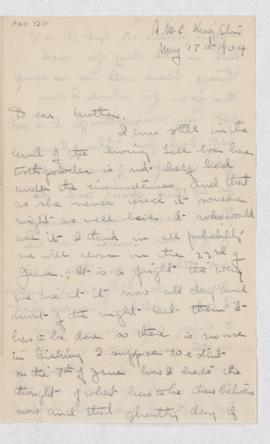 AEC. 12/1
May 17th 1904
Dear Mother.
I am still in the
land of the living
tooth powder is not half bad
under the circumstances and that
as she never used it someone
might as well have it
use it I think in all probability
we will close on the 23rd of
June. It is a fright the way
we are at it now all day and
most of the night but then it
has to be done so there is no use
in kicking I suppose
on the 7th of June how I hate the
thought of what has to be done between
now and that ghastly day of